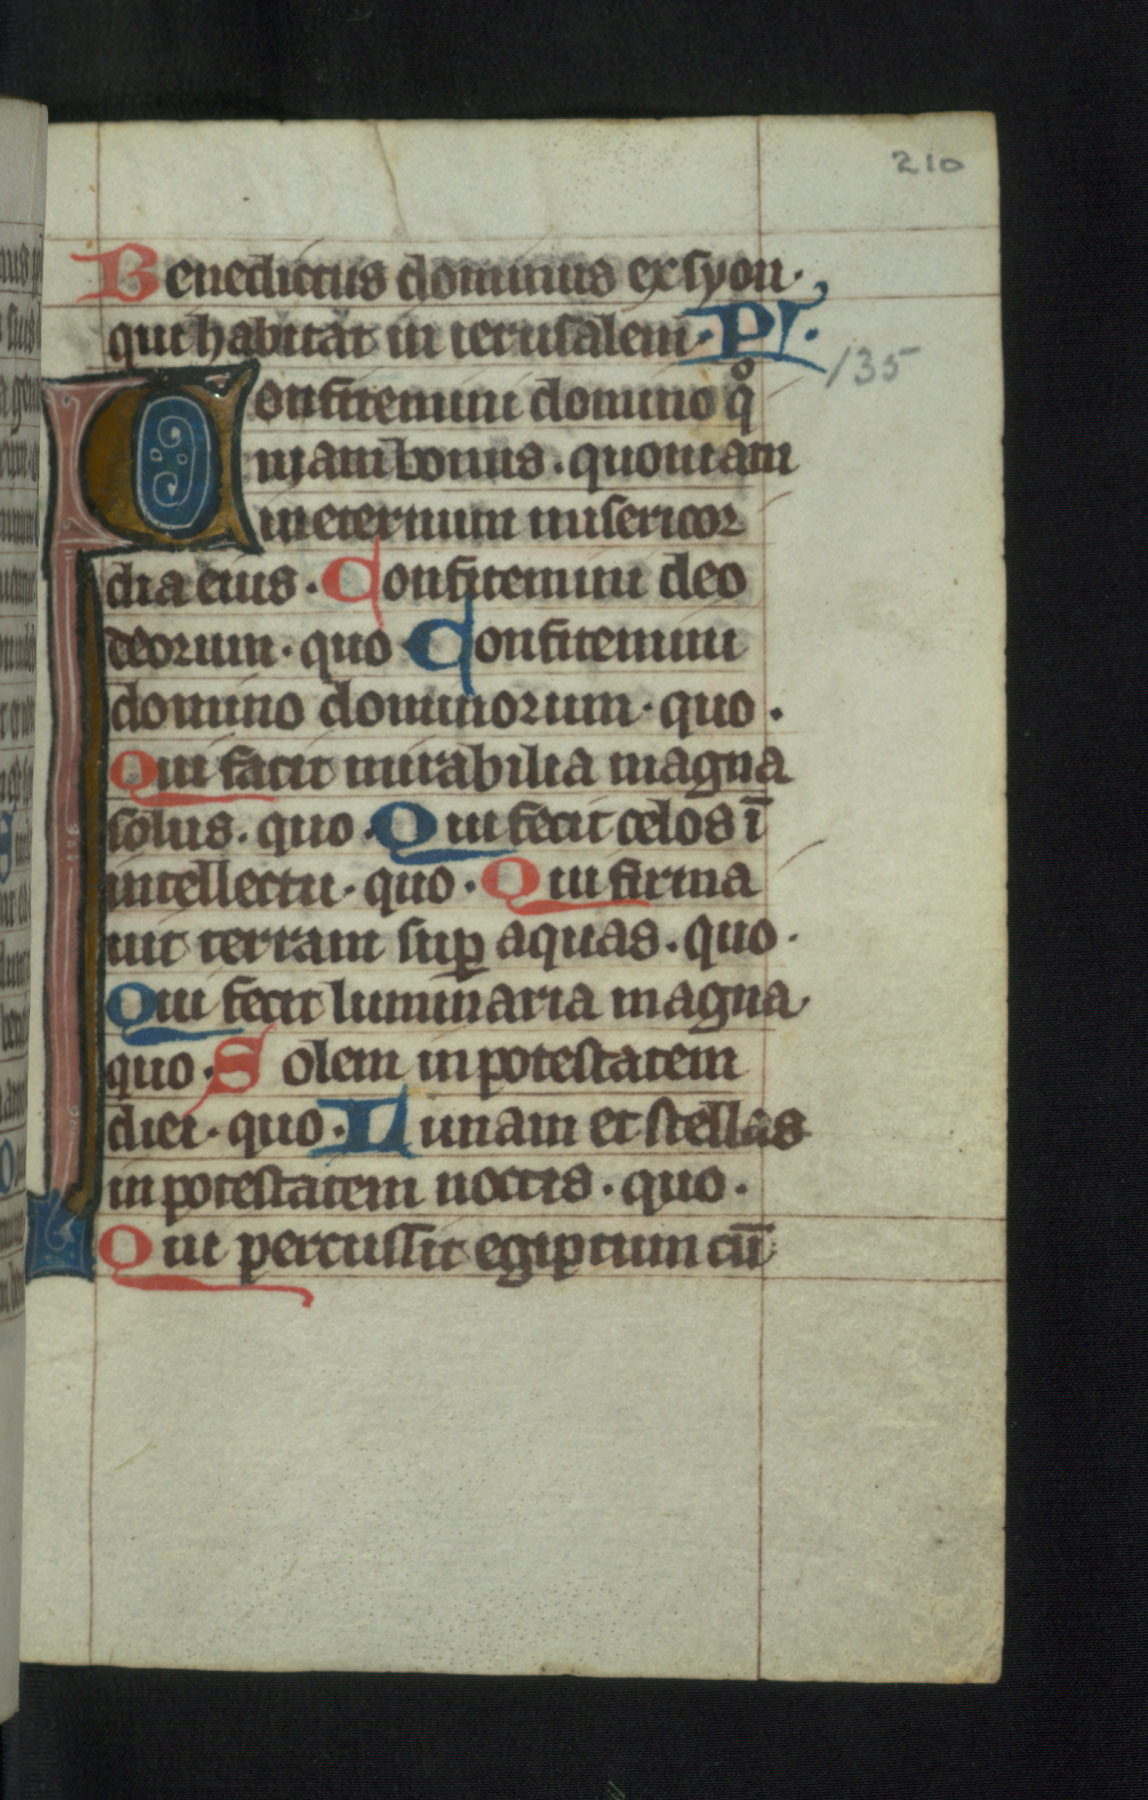 210
Benedictus dominus ex syon.
qui habitat in ierusalem. Ps.
135
Confitemini domino qo
niam bonus. quoniam
in eternum misericor
dia eius. Confitemini deo
deorum. quo Confitemini
domino dominorum. quo.
Qui facit mirabilia magna
solus. quo. Qui fecit celos ī
intellectu. quo. Qui firma
uit terram sup̱ aquas. quo.
Qui fecit luminaria magna.
quo. Solem in potestatem
diei. quo. Lunam et stellas
in potestatem noctis. quo.
Qui percussit egiptum cū